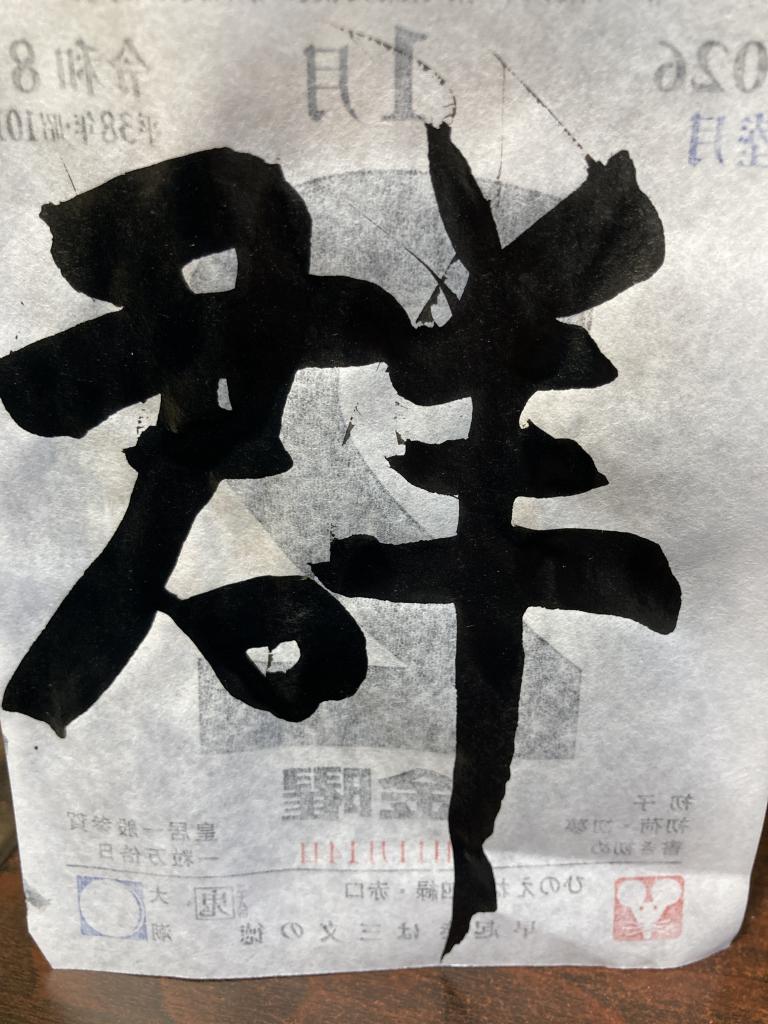 2026 1月 令和8
睦月 平38年・昭101
群
金曜
初子
初荷・初夢 皇居一般参賀
書き初め 一粒万倍日
11月14日
ひのえね 四緑・赤口 大潮
早起きは三文の徳